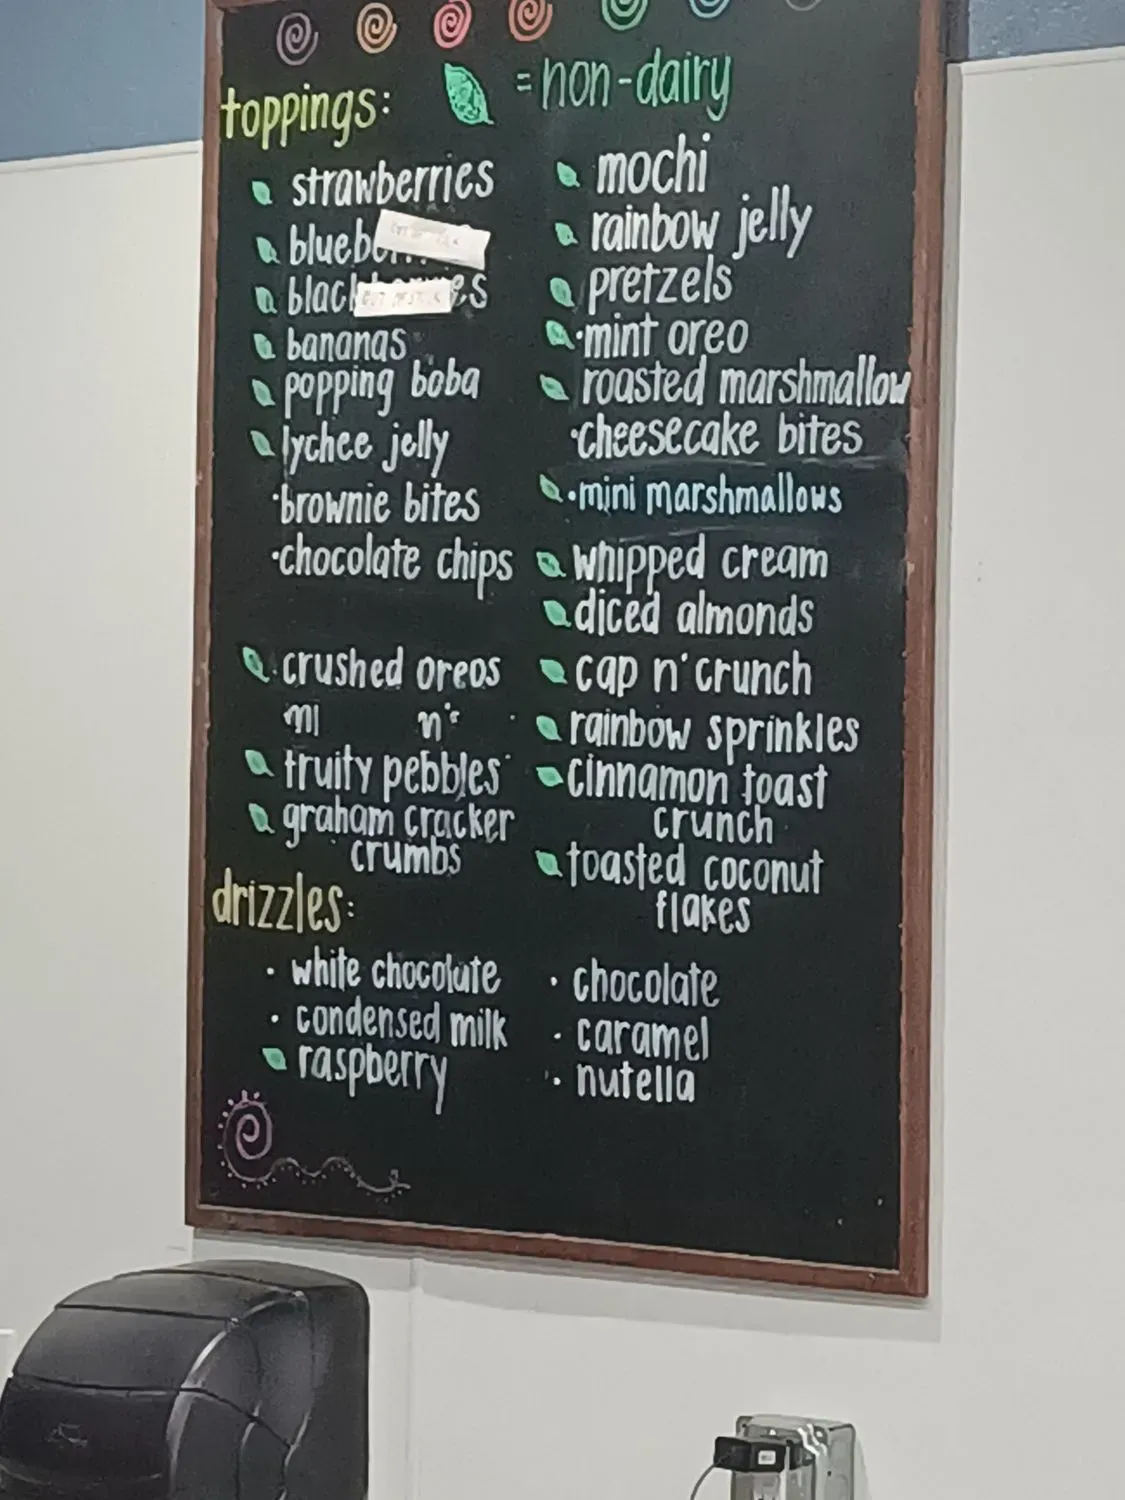 = non-dairy
toppings:
strawberries
blackberries
bananas
popping boba
lychee jelly
·brownie bites
·chocolate chips
·crushed oreos
fruity pebbles
graham cracker
crumbs
mochi
rainbow jelly
pretzels
·mint oreo
roasted marshmallow
·cheesecake bites
·mini marshmallows
whipped cream
diced almonds
cap n' crunch
rainbow sprinkles
cinnamon toast
crunch
toasted coconut
flakes
drizzles:
· white chocolate
· condensed milk
raspberry
· chocolate
· caramel
· nutella